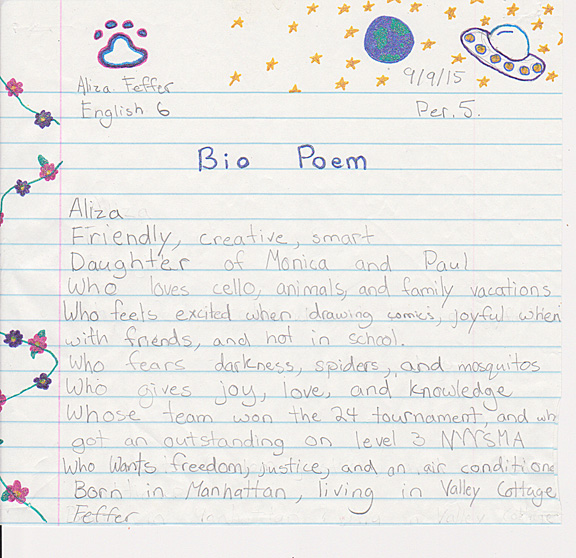 Aliza Feffer
9/9/15
English 6
Per. 5.
Bio Poem
Aliza
Friendly, creative, smart
Daughter of Monica and Paul
Who loves cello, animals, and family vacations
Who feels excited when drawing comics, joyful when
with friends, and hot in school.
Who fears darkness, spiders, and mosquitos
Who gives joy, love, and knowledge
Whose team won the 24 tournament, and wh
got an outstanding on level 3 NYSSMA
Who wants freedom, justice, and an air conditione
Born in Manhattan, living in Valley Cottage
Feffer